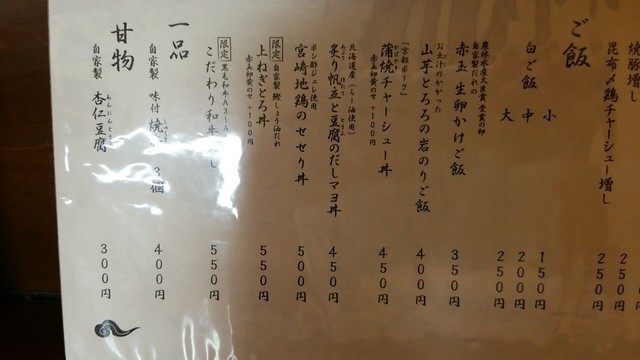 焼豚増し 250円
昆布〆鶏チャーシュー増し 250円
ご飯
白ご飯
小 150円
中 200円
大 250円
農林水産大臣賞 受賞の卵
自家製だれの
赤玉 生卵かけご飯 350円
お出汁のかかった
山芋とろろの岩のりご飯 400円
「京都ポーク」
蒲焼チャーシュー丼 450円
かばやき
赤玉卵黄のせ +100円
北海道産(ラー油使用)
炙り帆立と豆腐のだしマヨ丼 450円
あぶり ほたて とうふ
ポン酢ジュレ使用
宮崎地鶏のせせり丼 500円
限定 自家製 鰹しょう油だれ
上ねぎとろ丼 550円
赤玉卵黄のせ +100円
限定 黒毛和牛A3~A
こだわり和牛 し 550円
一品
自家製 味付 焼 3個 400円
甘物
自家製 杏仁豆腐 300円
あんにんとうふ